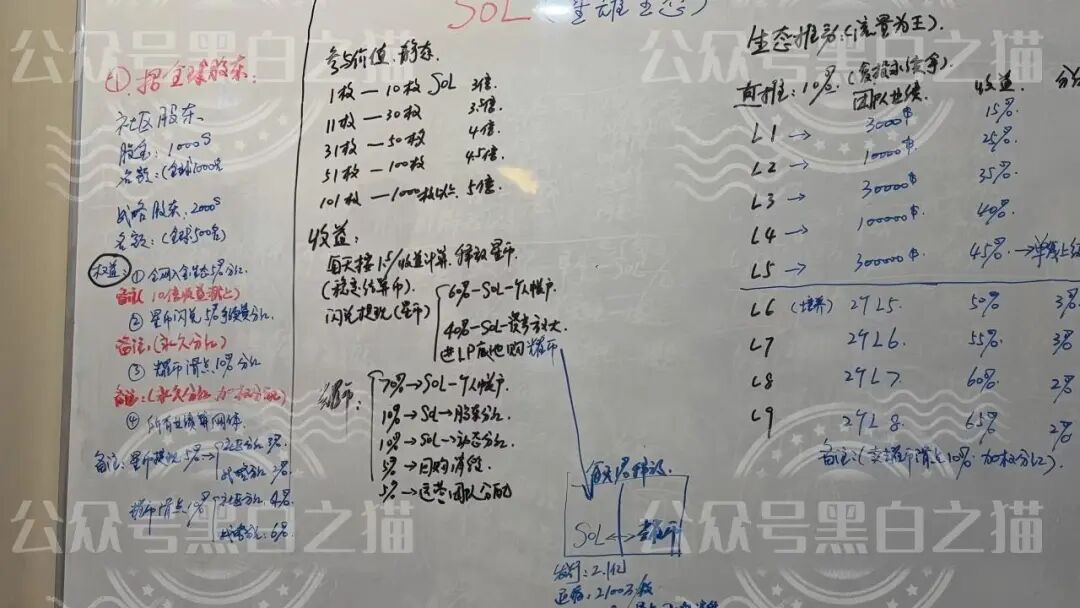 SOL
①招全球股东:
社区股东
股金: 1000$
名额:(全球1000名
战略股东:2000$
名额:(全球500名)
权益
①全网入金生态5%分红
备注(10倍收益
②星币闪兑5%手续费分红
备注:(永久分红)
③耀币滑点10%分红
备注:(永久分红 加权分配)
④所有业绩算网体
备注:星币提现5%→社区分红
战略分红
耀币滑点10%
社区分红 4%
战略分红 6%
参与价值 静态
1枚—10枚 SOL 3倍
11枚—30枚 3.5倍
31枚—50枚 4倍
51枚—100枚 4.5倍
101枚—1000枚以上 5倍
收益:
每天按1%收益计算.释放星币
(稳定结算币).
闪兑提现(星币)
60%-SOL-个人帐户
40%-SOL-
进LP底池购耀币
耀币:
70%→SOL-个人帐户
10%→SOL→股东分红
10%→SOL→动态分红
5%→回购消毁
5%→运营团队分配
SOL↔
发行:2.1亿
2100万枚
生态推广:(流量为王)
直推:10%
团队业绩
收益
分红
L1 → 3000$ 15%
L2 → 10000$ 25%
L3 → 30000$ 35%
L4 → 100000$ 40%
L5 → 300000$ 45%
L6 (培养) 2个L5 50% 3%
L7 2个L6 55% 3%
L8 2个L7 60% 2%
L9 2个L8 65% 2%
备注(交耀币滑点10% 加权分红)
公众号黑白之猫
公众号黑白之猫
公众号黑白之猫
公众号黑白之猫